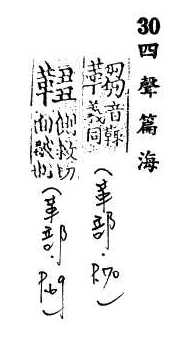 30 四聲篇海
音
義同
(革部·P.70)
側救切
面皺也
(革部·P.69)